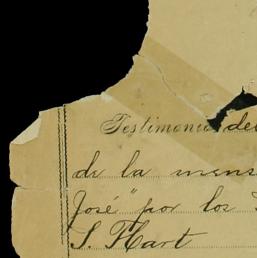 Testimonio de
de la mens
José" por los
S. Hart